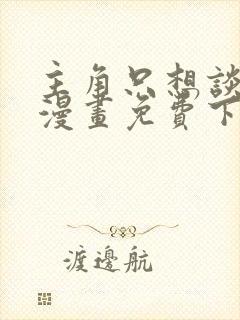 主角只想談
漫畫免費下
渡邊航